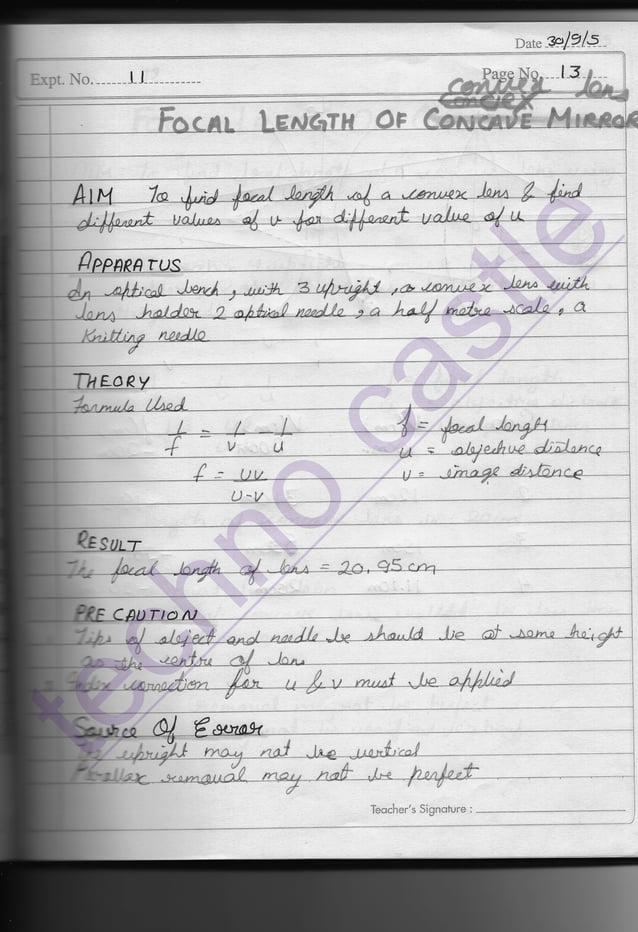 Date 30/9/5
Expt. No. 11
Page No. 13
convex lens
convex
FOCAL LENGTH OF CONCAVE MIRROR
AIM To find focal length of a convex lens & find
different values of v for different value of u
APPARATUS
An optical bench, with 3 upright, a convex lens with
lens holder 2 optical needle, a half metre scale, a
Knitting needle
THEORY
Formula Used
1/f = 1/v 1/u f = focal length
u = objective distance
f = uv/u-v v = image distance
RESULT
The focal length of lens = 20.95 cm
PRECAUTION
Tips of object and needle be should be at same height
as the centre of lens
Index correction for u & v must be applied
Source Of Error
The upright may not be vertical
Parallax removal may not be perfect
Teacher's Signature :
techno castle